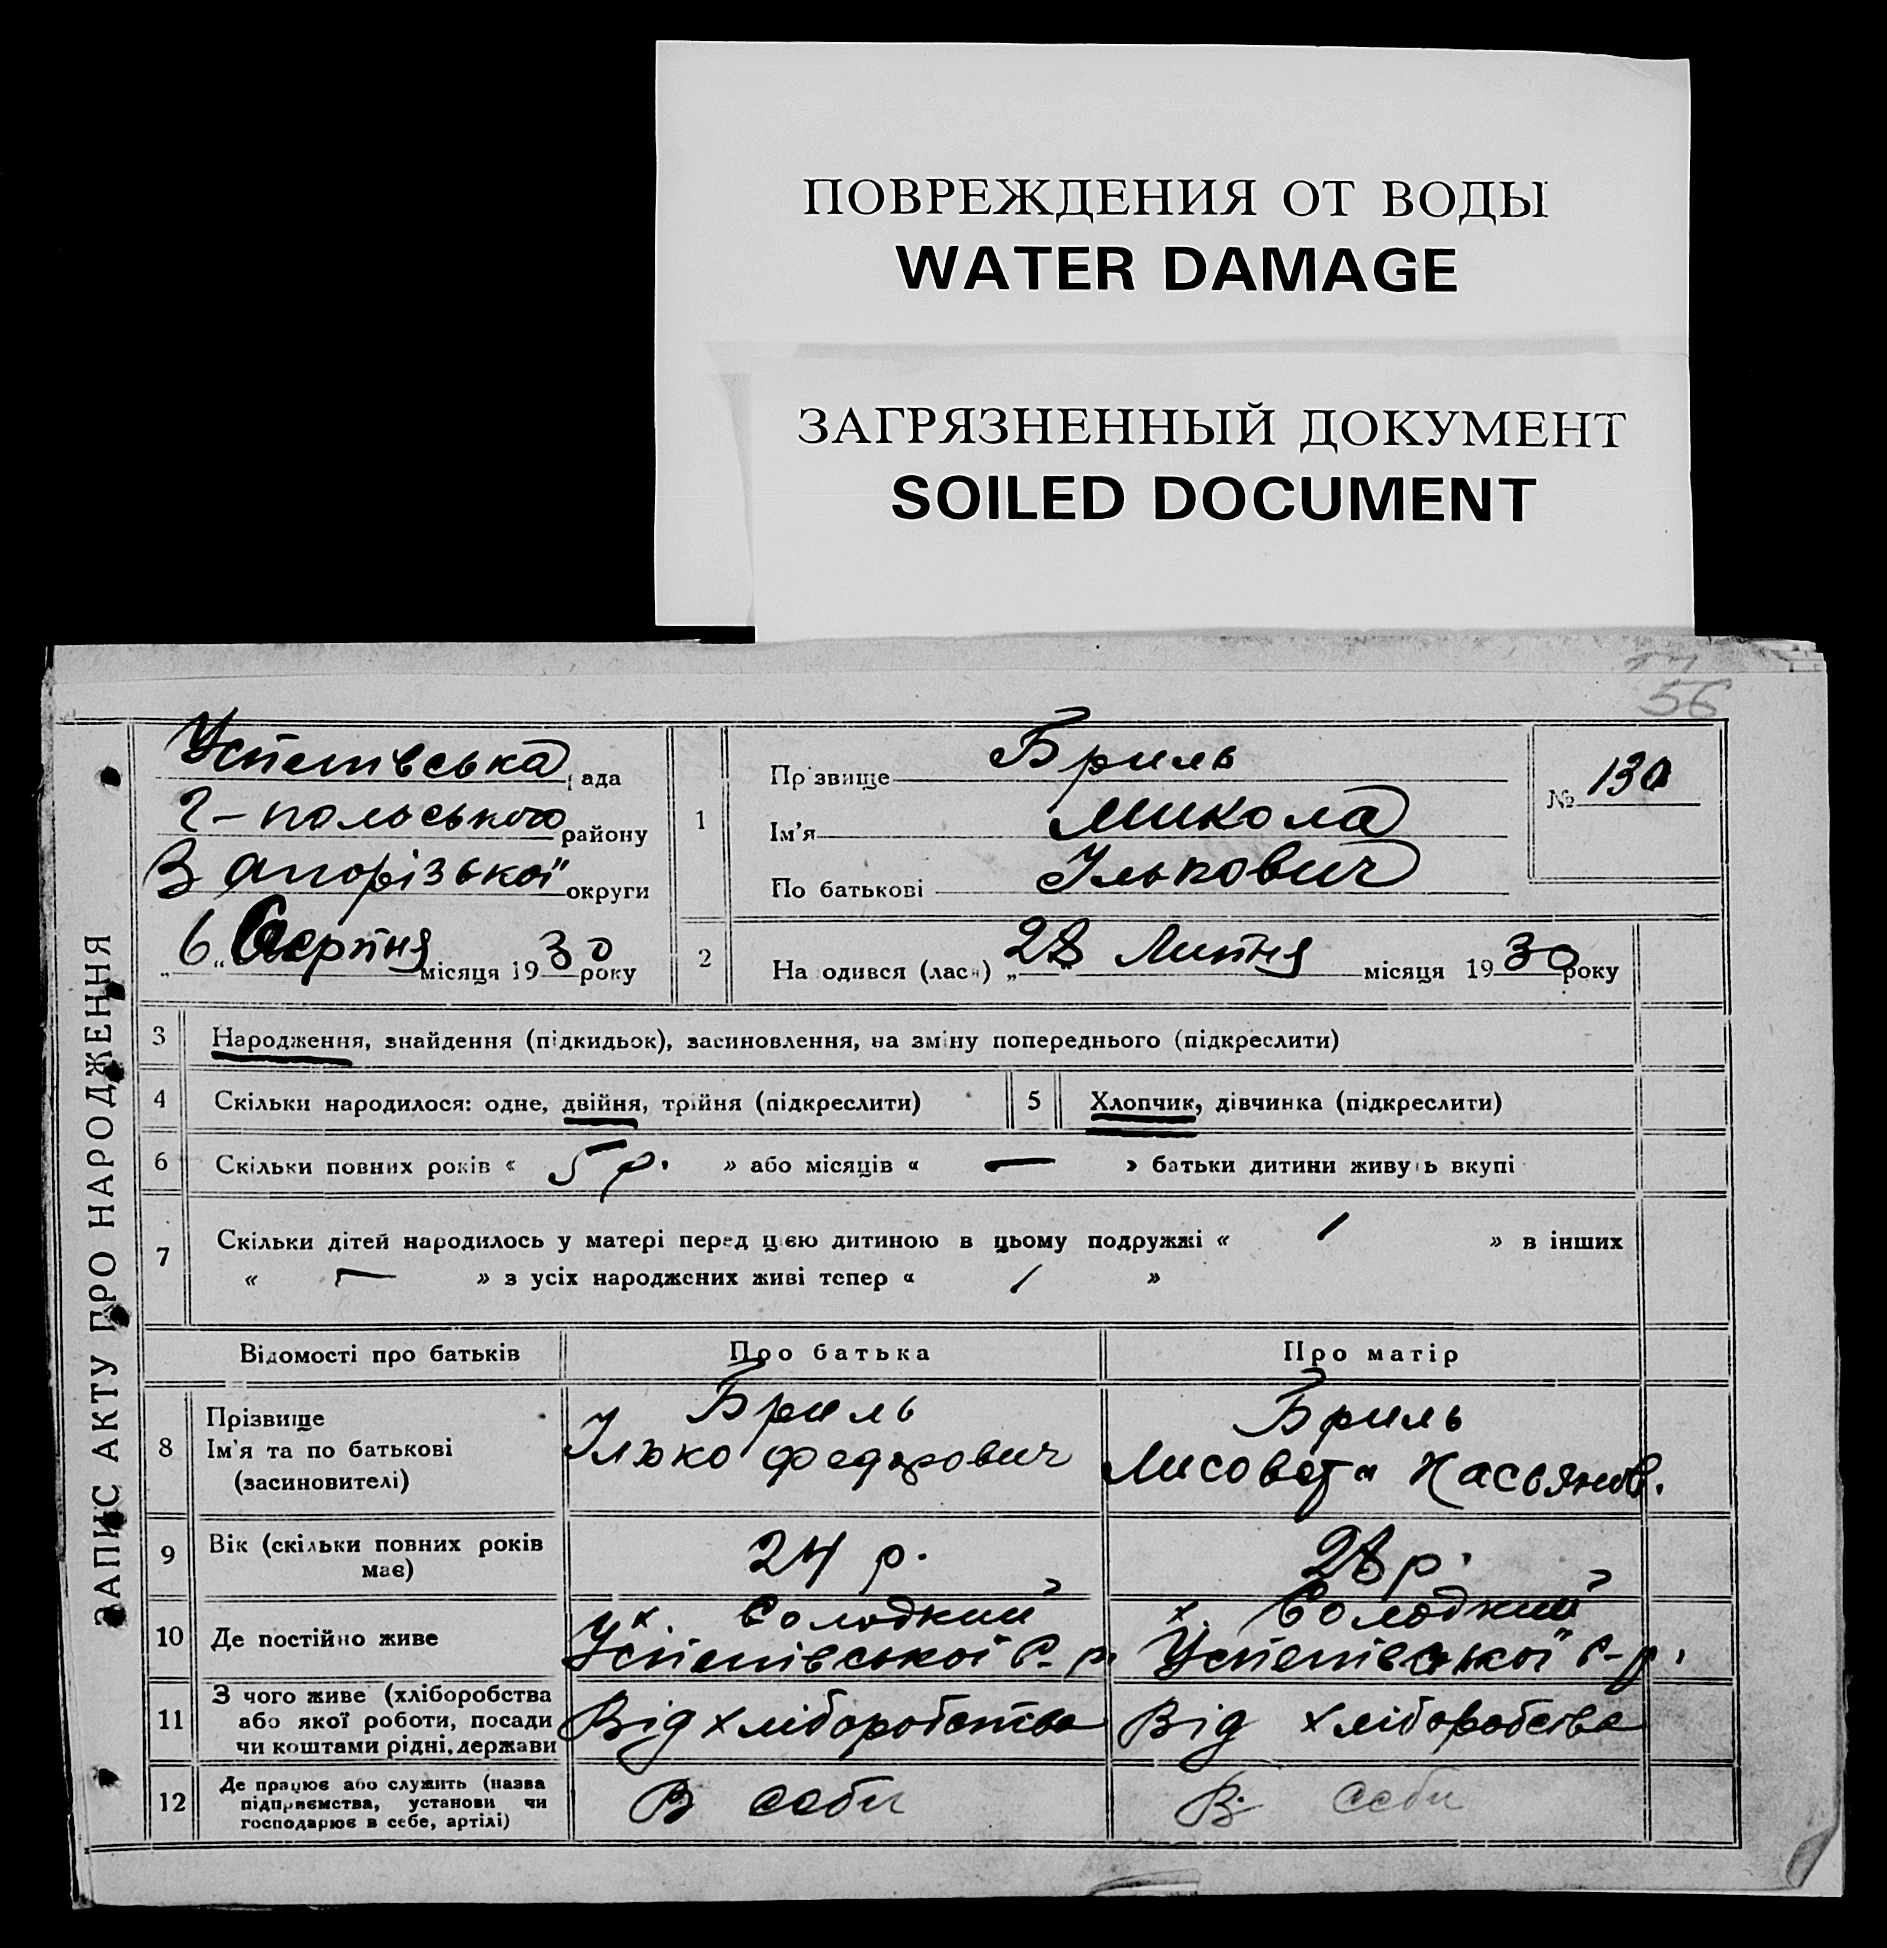 ПОВРЕЖДЕНИЯ ОТ ВОДЫ
WATER DAMAGE
ЗАГРЯЗНЕННЫЙ ДОКУМЕНТ
SOILED DOCUMENT
56
ЗАПИС АКТУ ПРО НАРОДЖЕННЯ
Успенівська рада
Г-польського району
Запорізької округи
„6“ Серпня місяця 1930 року
1
Прізвище Бриль
Ім'я Микола
По батькові Ількович
№ 130
2
Народився (лася) „28“ Липня місяця 1930 року
3 Народження, знайдення (підкидьок), засиновлення, на зміну попереднього (підкреслити)
4 Скільки народилося: одне, двійня, трійня (підкреслити) 5 Хлопчик, дівчинка (підкреслити)
6 Скільки повних років « 5 р. » або місяців « — » батьки дитини живуть вкупі
7 Скільки дітей народилось у матері перед цією дитиною в цьому подружжі « 1 » в інших
« — » з усіх народжених живі тепер « 1 »
Відомості про батьків Про батька Про матір
8 Прізвище Бриль Бриль
Ім'я та по батькові Ілько Федорович Лисовета Касьянов.
(засиновителі)
9 Вік (скільки повних років має) 24 р. 28 р.
10 Де постійно живе х. Солодкий х. Солодкий
Успенівської С-р. Успенівської С-р.
11 З чого живе (хліборобства
або якої роботи, посади Від хліборобства Від хліборобства
чи коштами рідні, держави
12 Де працює або служить (назва
підприємства, установи чи В себи В себи
господарює в себе, артілі)